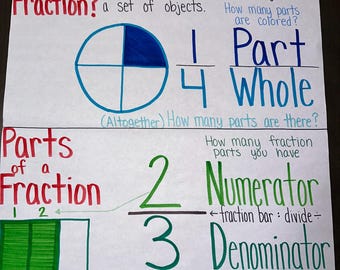 Fraction? a set of objects.
How many parts are colored?
1 Part
4 Whole
(Altogether) How many parts are there?
Parts of a Fraction
1 2
How many fraction parts you have
2 Numerator
← fraction bar : divide ÷
3 Denominator